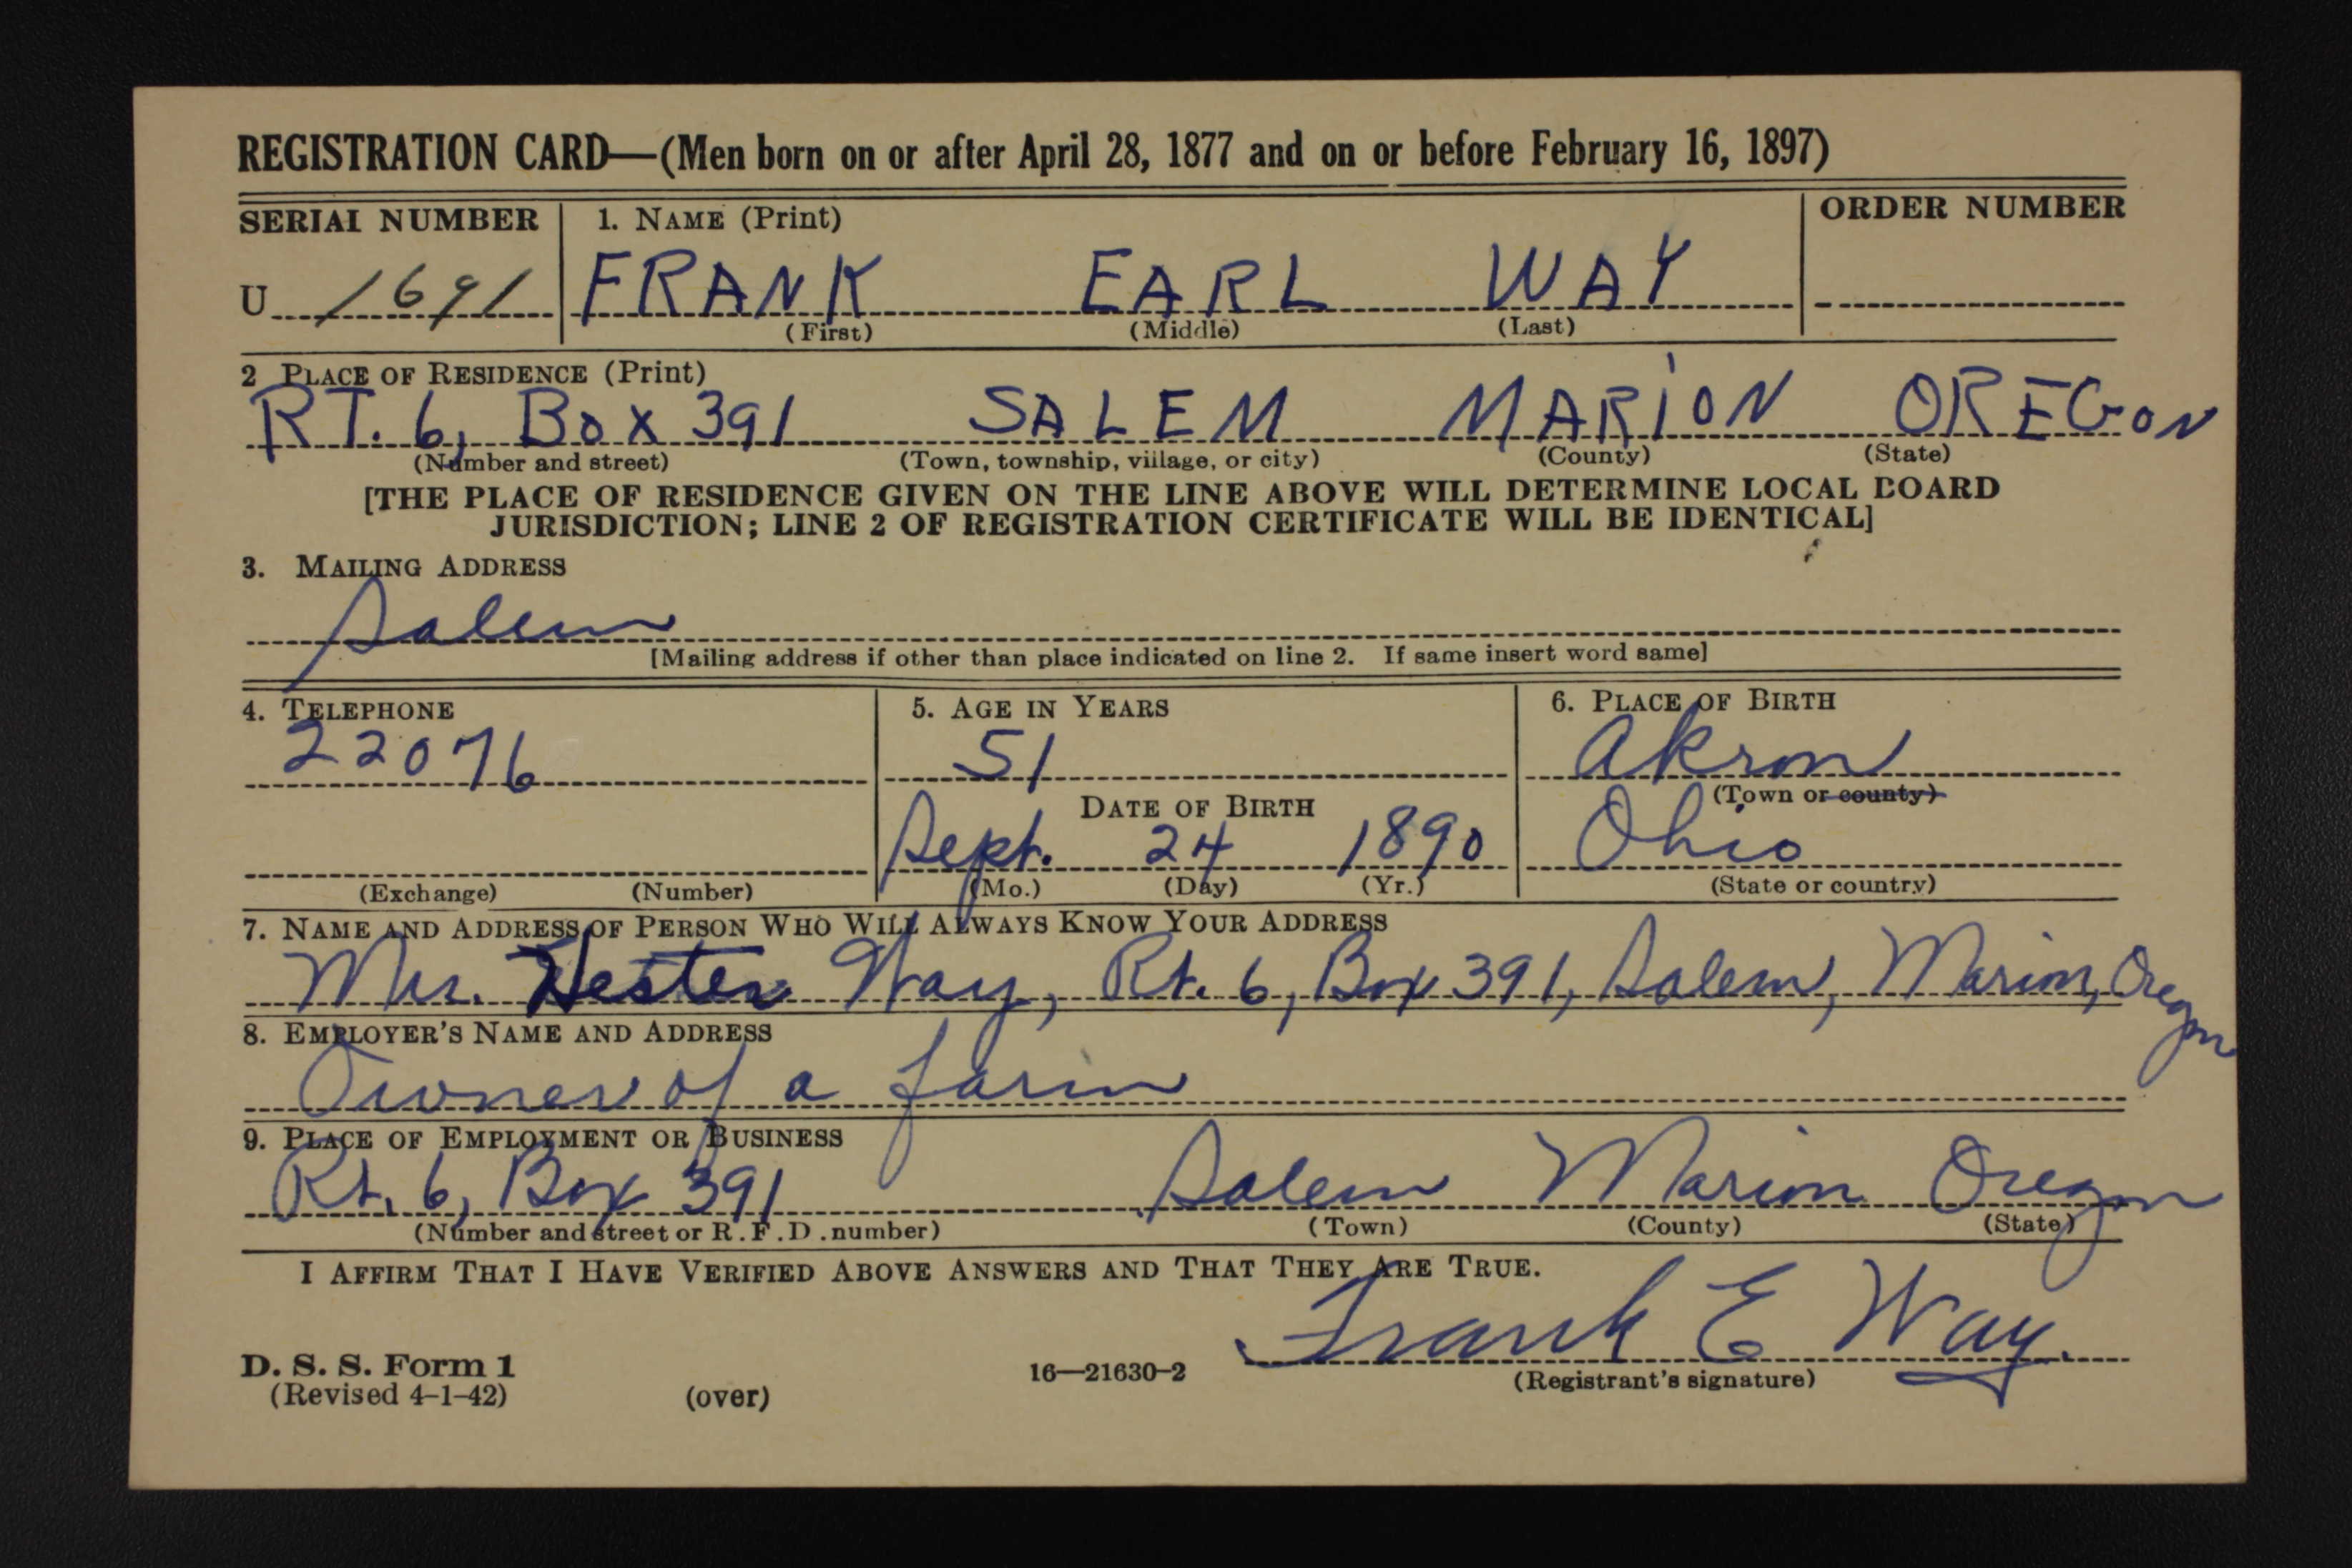 REGISTRATION CARD—(Men born on or after April 28, 1877 and on or before February 16, 1897)
SERIAL NUMBER 1. NAME (Print) ORDER NUMBER
U 1691 FRANK EARL WAY
(First) (Middle) (Last)
2 PLACE OF RESIDENCE (Print)
RT. 6, Box 391 SALEM MARION OREGON
(Number and street) (Town, township, village, or city) (County) (State)
[THE PLACE OF RESIDENCE GIVEN ON THE LINE ABOVE WILL DETERMINE LOCAL BOARD
JURISDICTION; LINE 2 OF REGISTRATION CERTIFICATE WILL BE IDENTICAL]
3. MAILING ADDRESS
Salem
[Mailing address if other than place indicated on line 2. If same insert word same]
4. TELEPHONE 5. AGE IN YEARS 6. PLACE OF BIRTH
22076 51 Akron
(Town or county)
DATE OF BIRTH
Sept. 24 1890 Ohio
(Exchange) (Number) (Mo.) (Day) (Yr.) (State or country)
7. NAME AND ADDRESS OF PERSON WHO WILL ALWAYS KNOW YOUR ADDRESS
Mrs. Hester Way, Rt. 6, Box 391, Salem, Marion, Oregon
8. EMPLOYER'S NAME AND ADDRESS
Owner of a farm
9. PLACE OF EMPLOYMENT OR BUSINESS
Rt. 6, Box 391 Salem Marion Oregon
(Number and street or R.F.D. number) (Town) (County) (State)
I AFFIRM THAT I HAVE VERIFIED ABOVE ANSWERS AND THAT THEY ARE TRUE.
Frank E Way.
D. S. S. Form 1 16—21630-2 (Registrant's signature)
(Revised 4-1-42) (over)